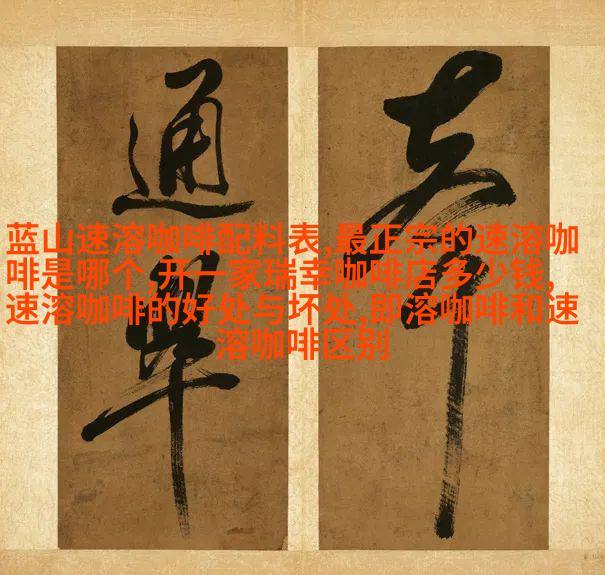 通
蓝山速溶咖啡配料表,最正宗的速溶咖
啡是哪个,开一家瑞幸咖啡店多少钱,
速溶咖啡的好处与坏处,即溶咖啡和速
溶咖啡区别